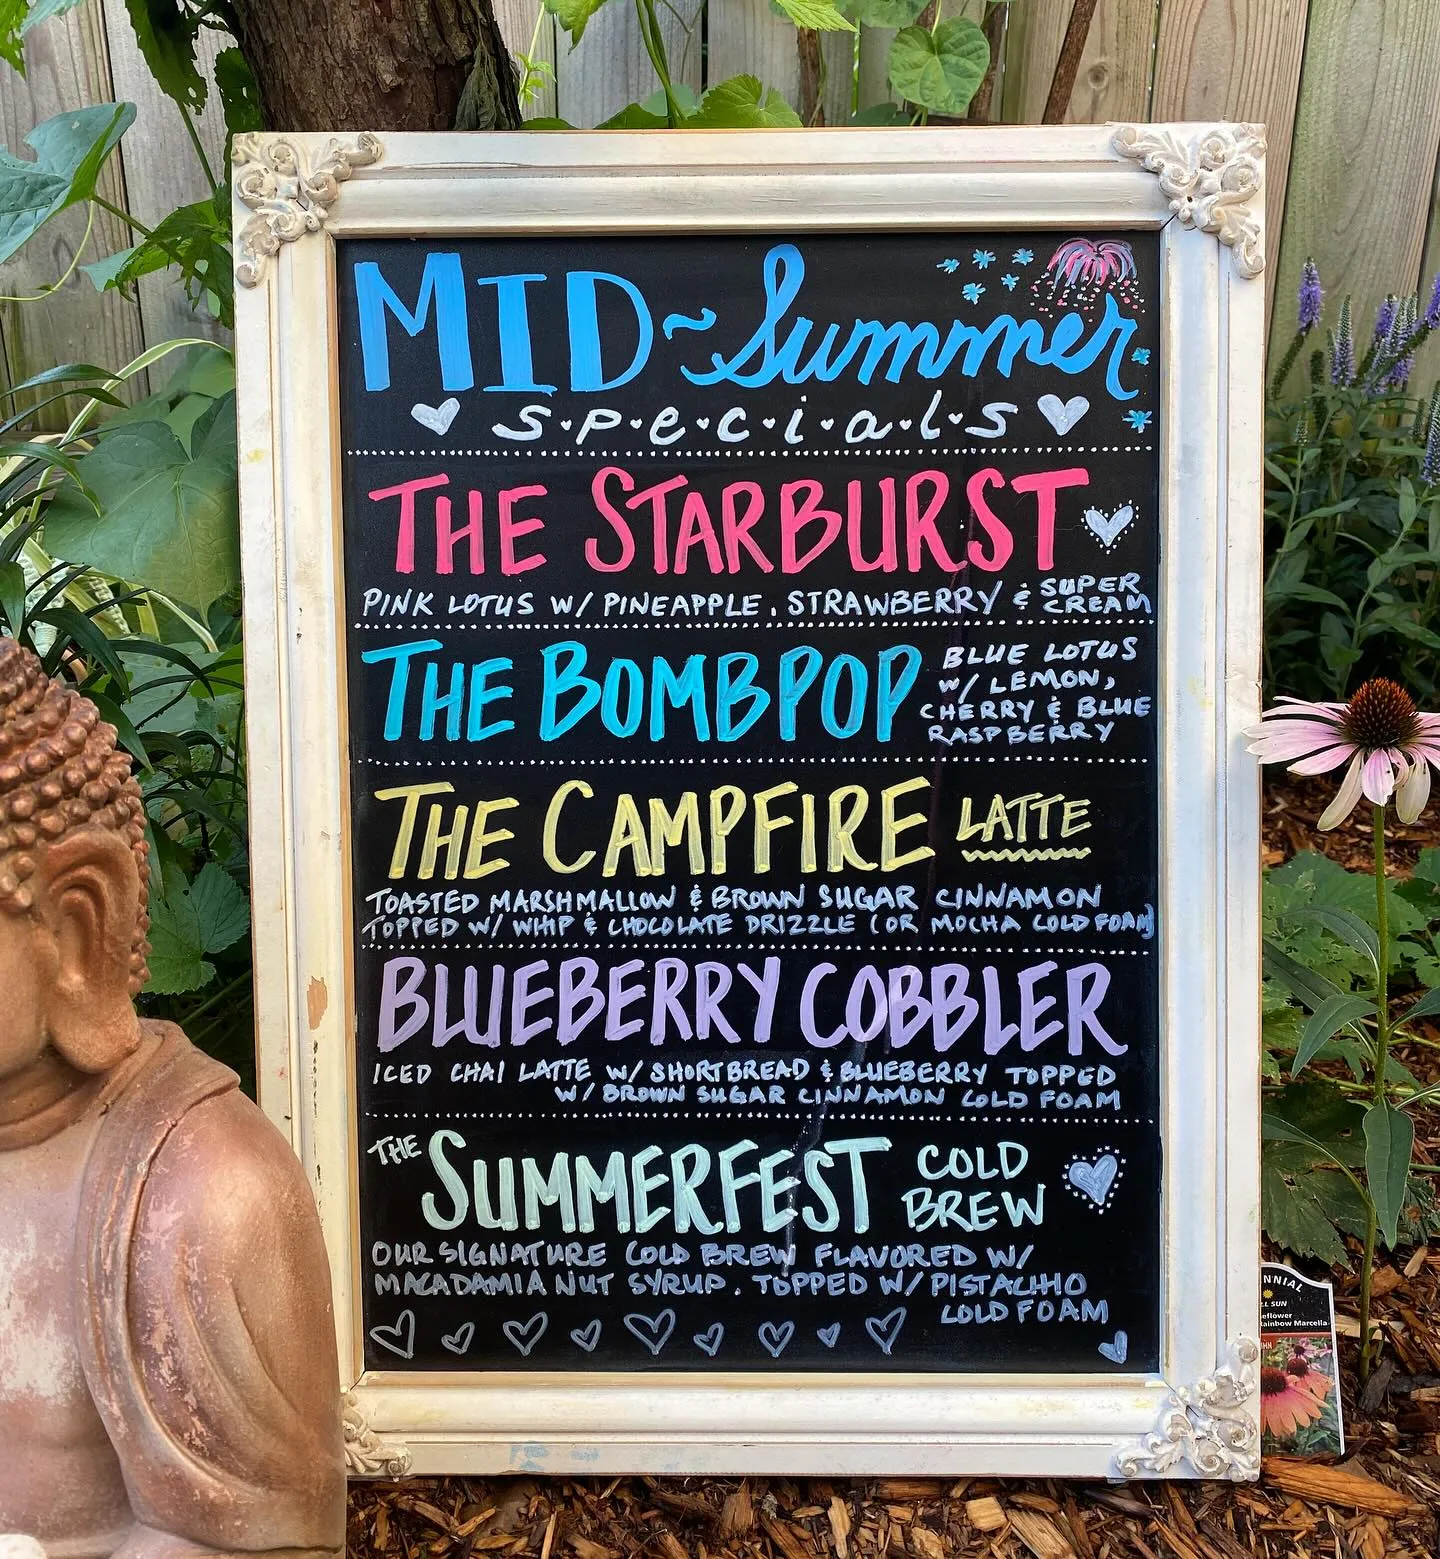 MID~Summer
s.p.e.c.i.a.l.s
THE STARBURST
PINK LOTUS W/ PINEAPPLE, STRAWBERRY & SUPER CREAM
THE BOMB POP
BLUE LOTUS
W/ LEMON,
CHERRY & BLUE
RASPBERRY
THE CAMPFIRE LATTE
TOASTED MARSHMALLOW & BROWN SUGAR CINNAMON
TOPPED W/ WHIP & CHOCOLATE DRIZZLE (OR MOCHA COLD FOAM)
BLUEBERRY COBBLER
ICED CHAI LATTE W/ SHORTBREAD & BLUEBERRY TOPPED
W/ BROWN SUGAR CINNAMON COLD FOAM
THE SUMMERFEST COLD BREW
OUR SIGNATURE COLD BREW FLAVORED W/
MACADAMIA NUT SYRUP. TOPPED W/ PISTACHIO
COLD FOAM
NNIAL
LL SUN
eflower
ainbow Marcella